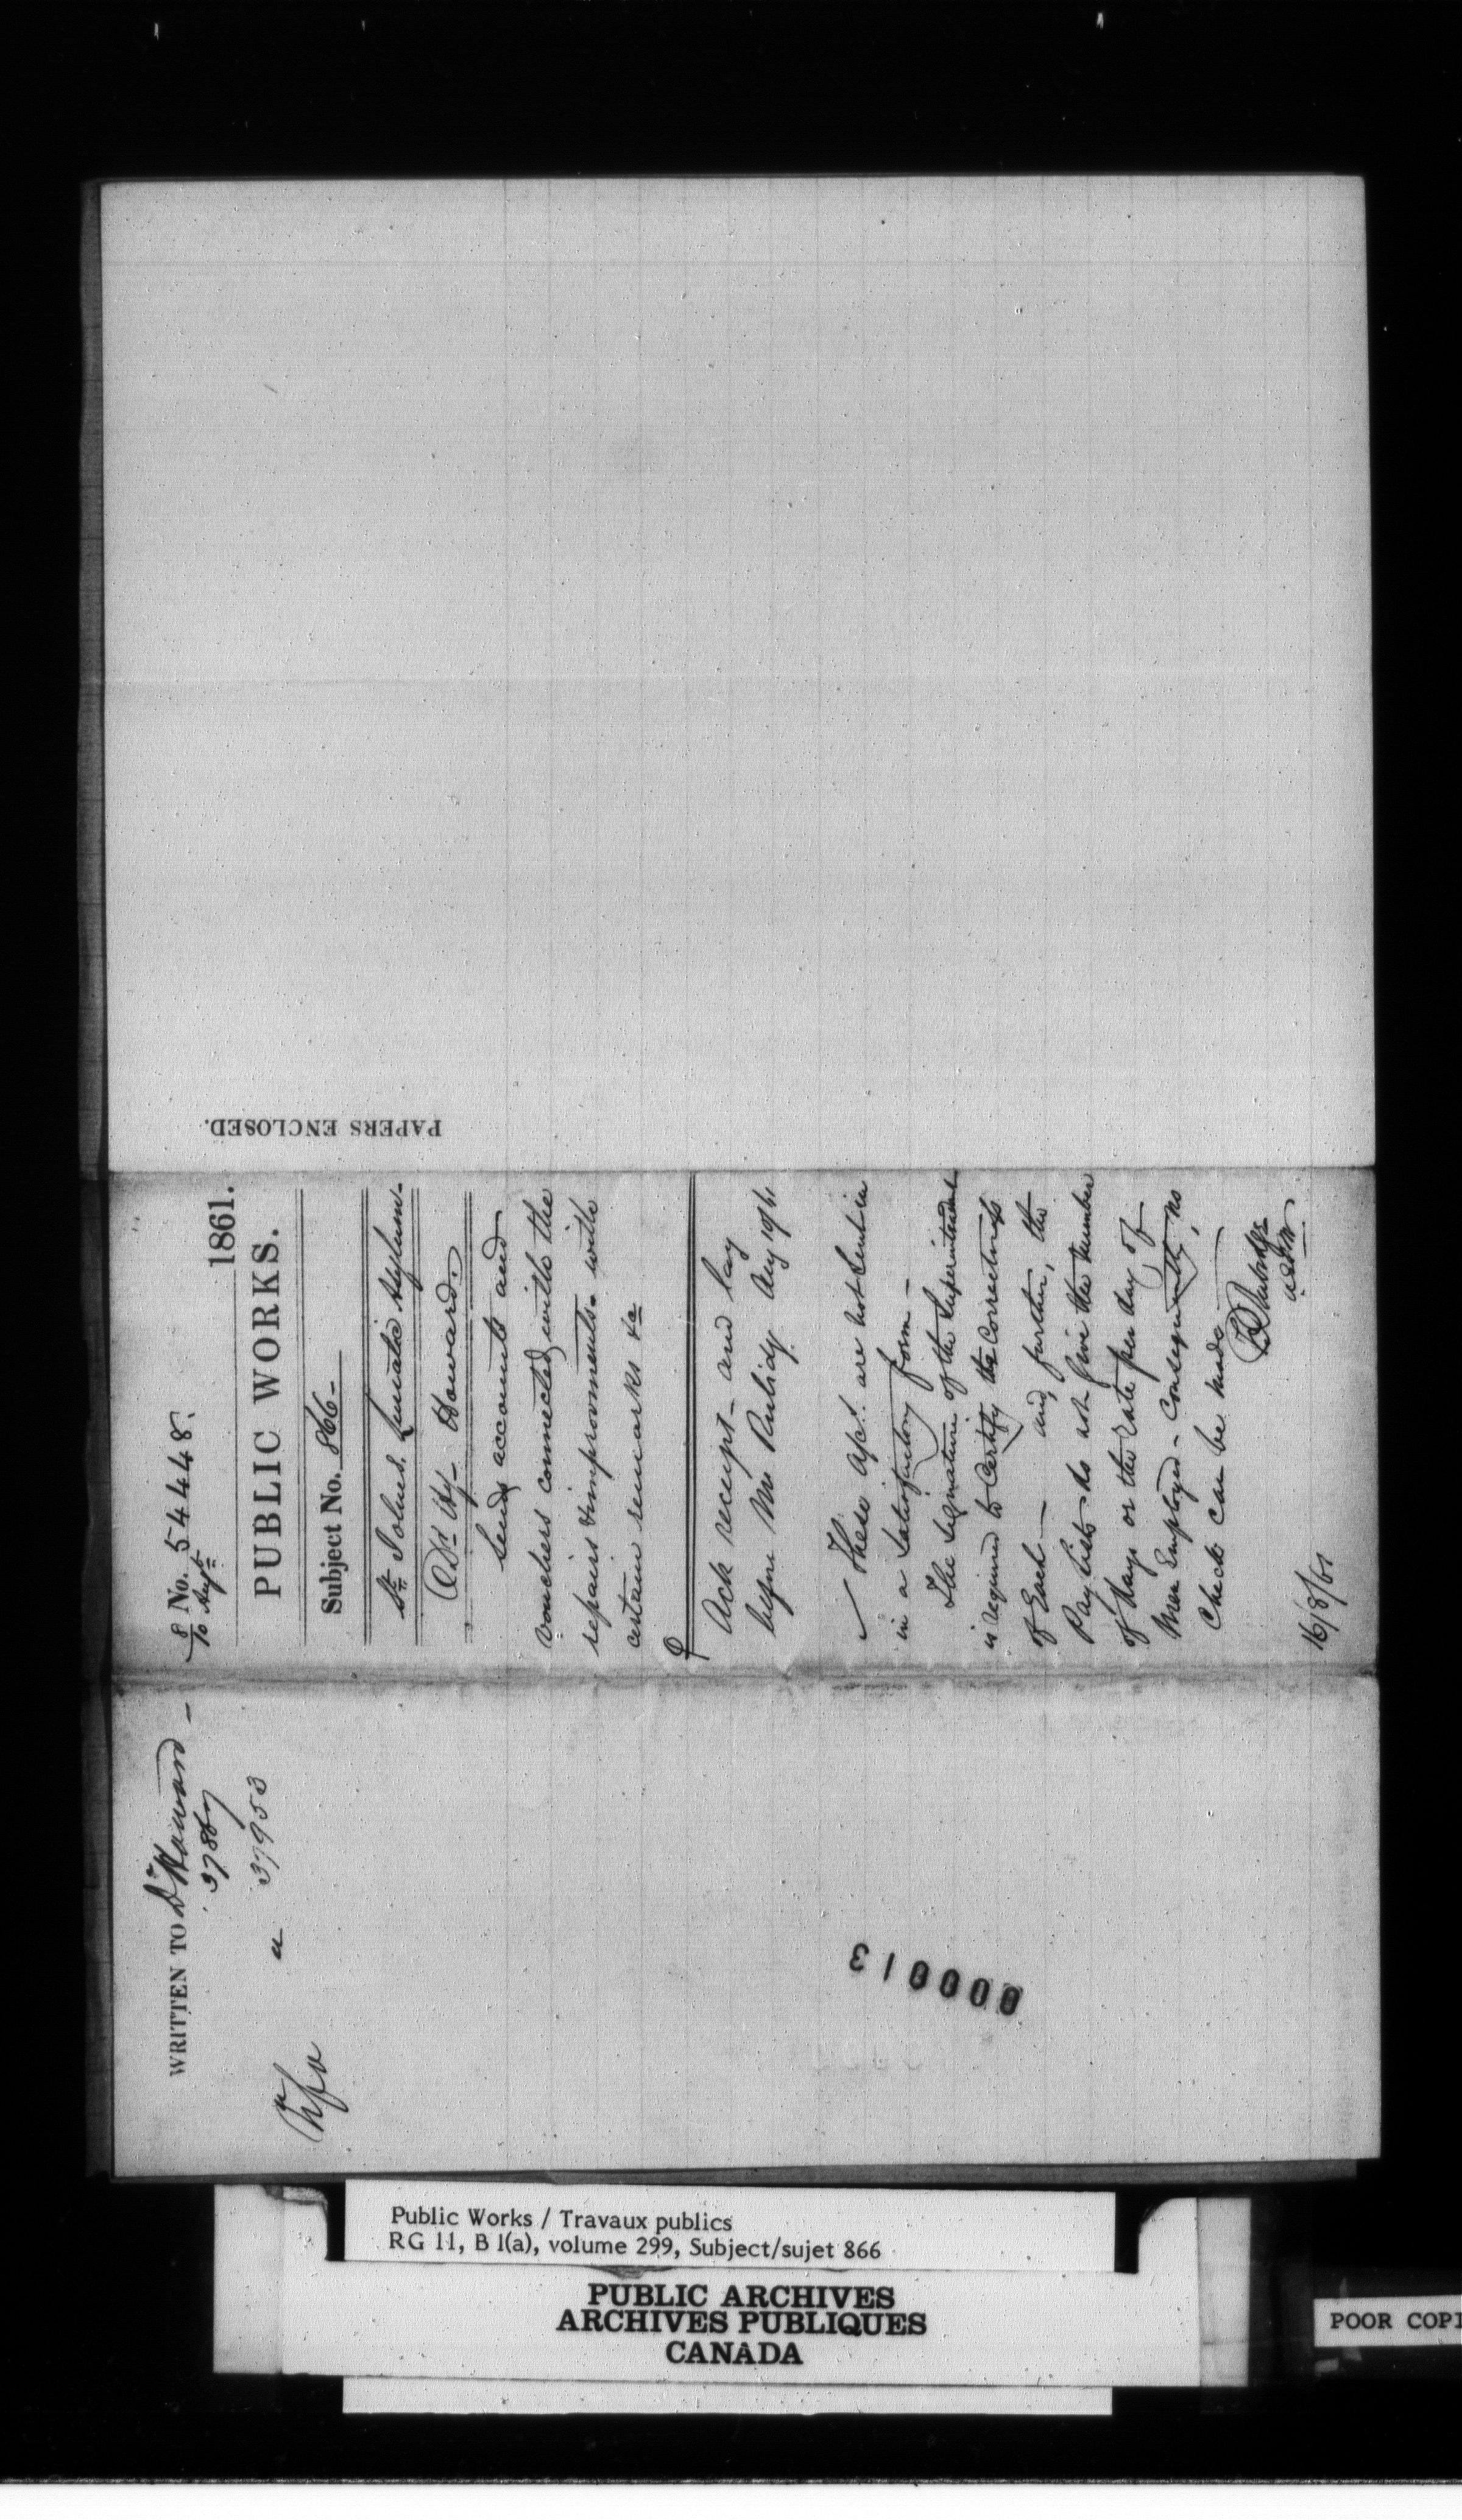 WRITTEN TO Dr Howard –
37867
" 37953
8/10 Augt No. 54448.
1861.
PUBLIC WORKS.
Subject No. 866 –
St. Johns. Lunatic Asylum –
Dr Hy – Howard.
sends accounts and
vouchers connected with the
repairs & improvements – with
certain remarks &c
Ack receipt – and lay
before Mr Rubidge Aug 10/61
These Acct. are not sent in
in a satisfactory form –
The signature of the Superintendent
is required to certify the correctness
of Each – and, further, the
Pay lists do not give the number
of days or the rate per day, of
Men Employed – Consequently, no
Check can be made
Rubidge
16/8/61
PAPERS ENCLOSED.
000013
Public Works / Travaux publics
RG 11, B 1(a), volume 299, Subject/sujet 866
PUBLIC ARCHIVES
ARCHIVES PUBLIQUES
CANADA
POOR COPI